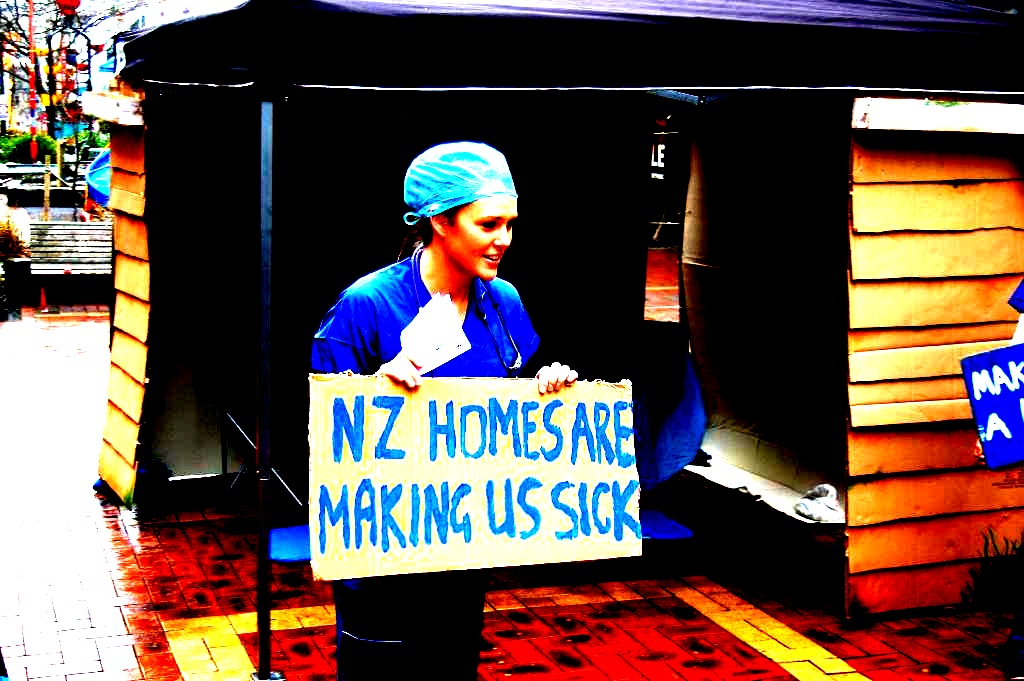 NZ HOMES ARE
MAKING US SICK
MAK
A
LE